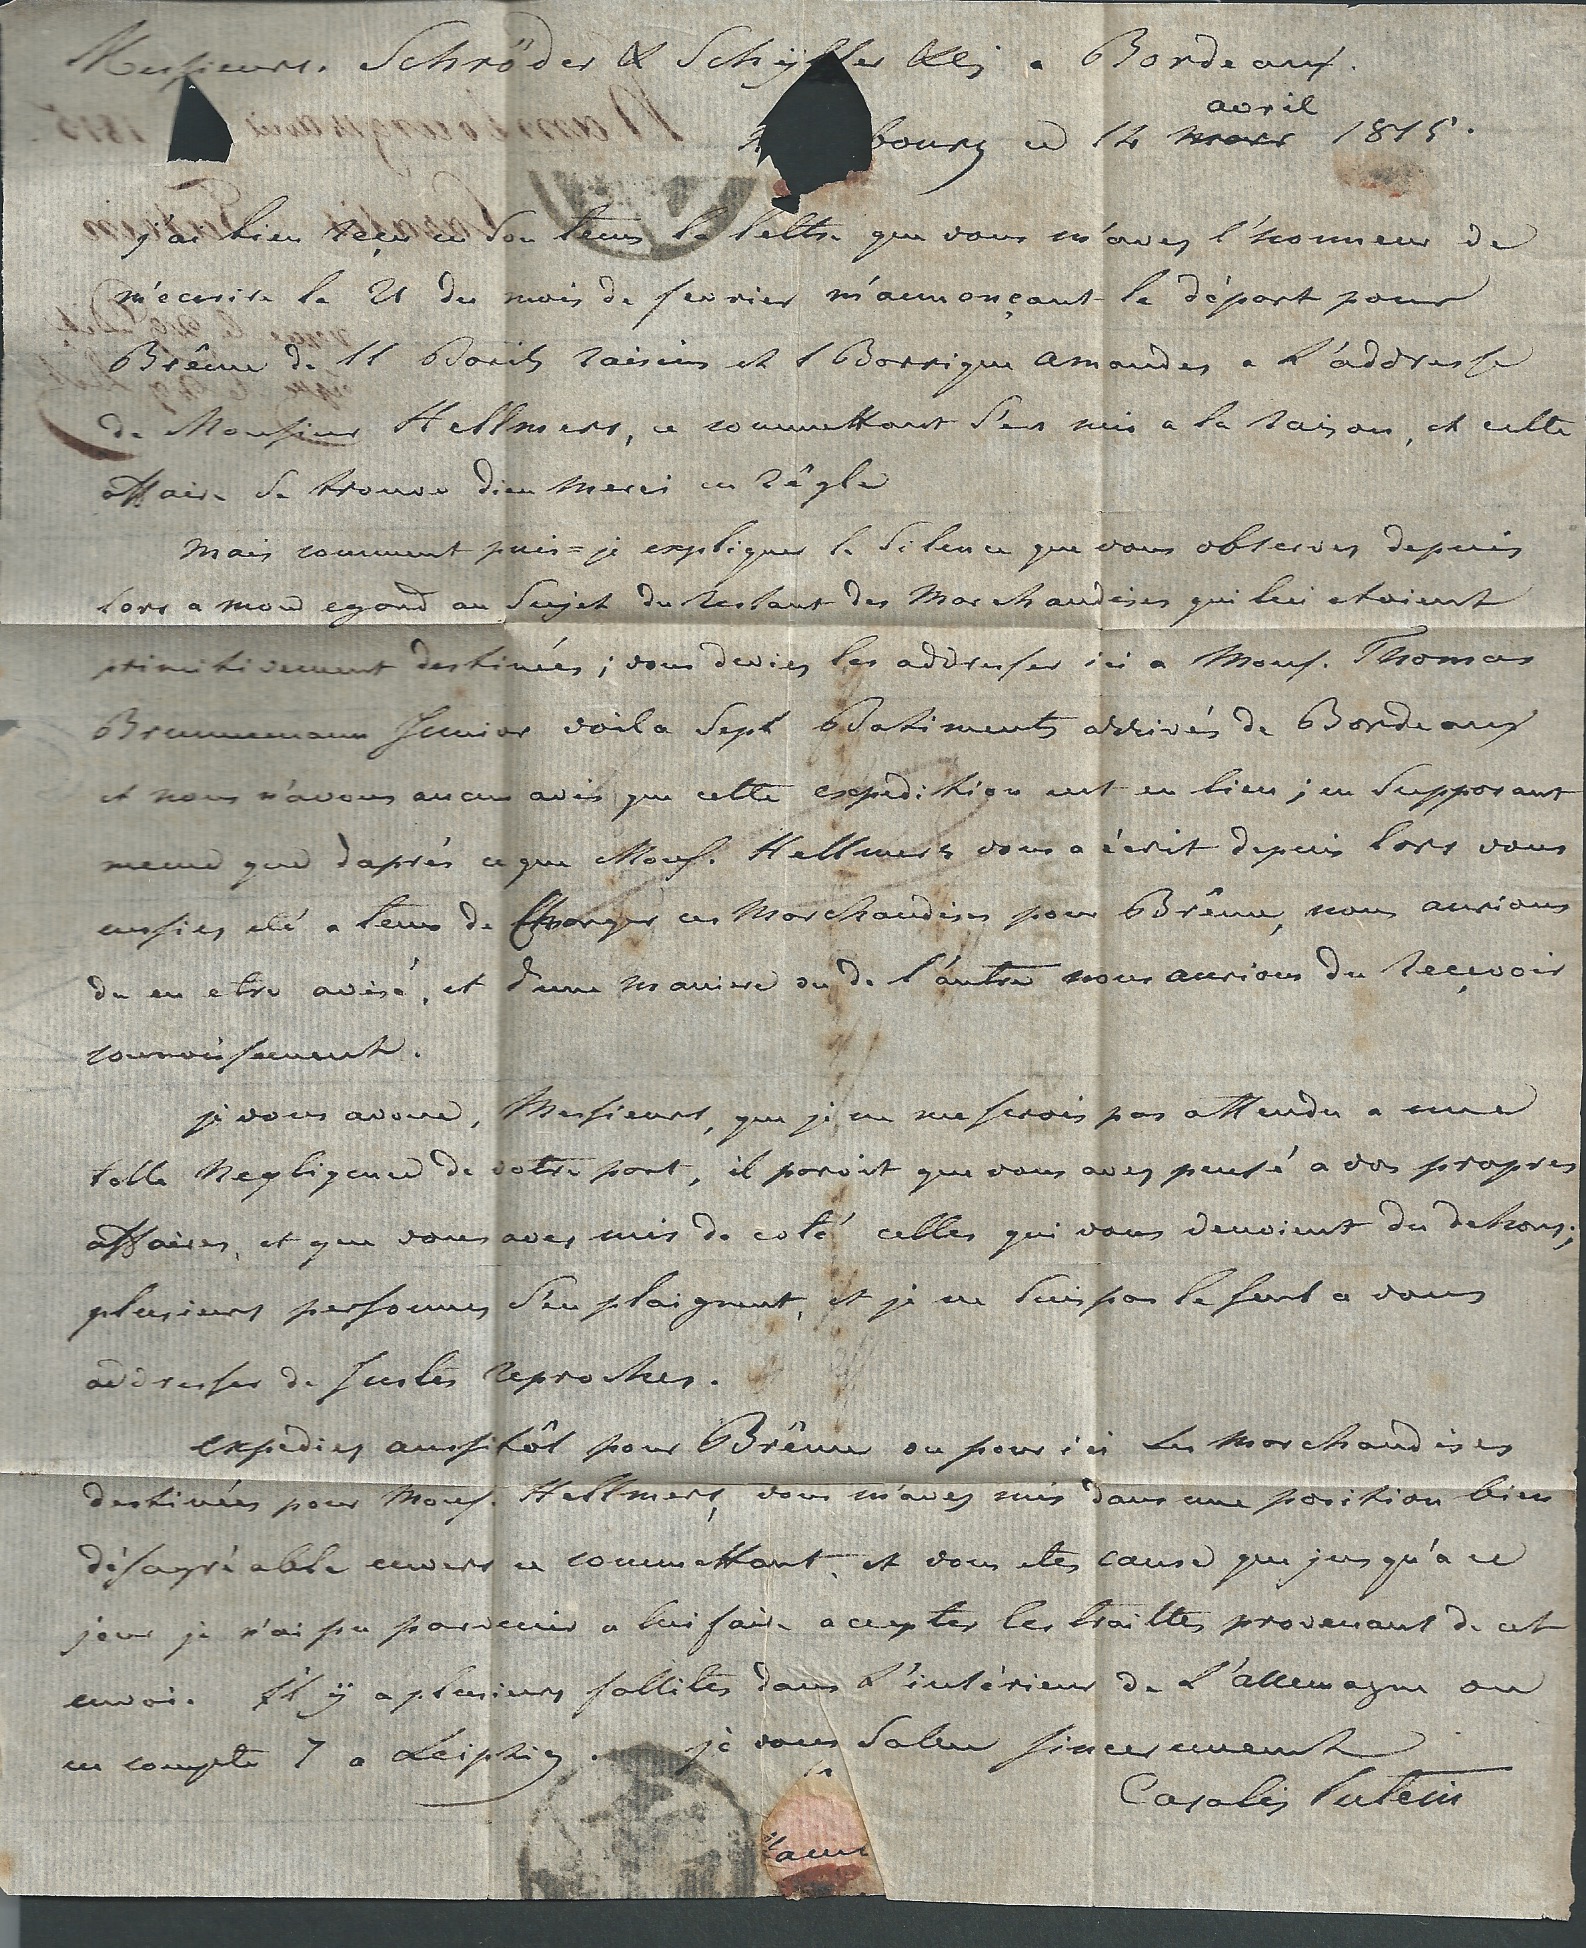 Messieurs. Schröder & Schÿller & Cie a Bordeaux.
avril
bourg ce 14 mars 1815.
j'ai bien reçu en son tems la lettre que vous m'aves l'honneur de
m'ecrire le 21 du mois de fevrier m'annonçant le départ pour
Brême de 11 Barils raisins et 1 Barrique amandes a l'addresse
de Monsieur Hellmers, ce committant s'est mis a la raison, et cette
affaire se trouve dieu merci en régle
Mais comment puis=je expliquer le silence que vous observes depuis
lors a mon egard au sujet du restant des Marchandises qui lui etoient
primitivement destinées; vous devies les addresser ici a Mons. Thomas
Brunnemann Junior voila sept Batiments arrivés de Bordeaux
et nous n'avons aucun avis que cette expedition eut eu lieu; en supposant
meme que daprés ce que Mons. Hellmers vous a écrit depuis lors vous
eussies eté a tems de Changer ces Marchandises pour Brême, nous aurions
du en etre avisé, et d'une maniere ou de l'autre nous aurions du reçevoir
connoissement.
je vous avoue, Messieurs, que je ne me serois pas attendu a une
telle Negligence de votre part, il paroit que vous aves pensé a vos propres
affaires, et que vous aves mis de coté celles qui vous venoient du dehors;
plusieurs personnes s'en plaignent, et je ne suis pas le seul a vous
addresser de Justes reproches.
Expedies aussitôt pour Brême ou pour ici les Marchandises
destinées pour Mons. Hellmers, vous m'aves mis dans une position bien
désagréable envers ce committant, et vous etes cause que jusqu'a ce
jour je n'ai pu parvenir a lui faire accepter les traittes provenant de cet
envoi. Il ÿ a plusieurs fallites dans l'intérieur de l'allemagne on
en compte 7 a Leipzig. je vous salue sincerement
Casalis Putein